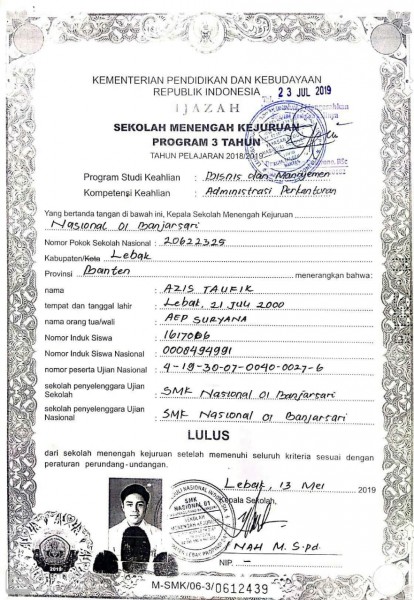 KEMENTERIAN PENDIDIKAN DAN KEBUDAYAAN
REPUBLIK INDONESIA
23 JUL 2019
IJAZAH
SEKOLAH MENENGAH KEJURUAN
PROGRAM 3 TAHUN
TAHUN PELAJARAN 2018/2019
Program Studi Keahlian : Bisnis dan Manajemen
Kompetensi Keahlian : Administrasi Perkantoran
Yang bertanda tangan di bawah ini, Kepala Sekolah Menengah Kejuruan
Nasional 01 Banjarsari
Nomor Pokok Sekolah Nasional : 20622325
Kabupaten/Kota Lebak
Provinsi Banten menerangkan bahwa:
nama : AZIS TAUFIK
tempat dan tanggal lahir : Lebak, 21 Juli 2000
nama orang tua/wali : AEP SURYANA
Nomor Induk Siswa : 1617086
Nomor Induk Siswa Nasional : 0008494991
nomor peserta Ujian Nasional : 4-19-30-07-0040-0027-6
sekolah penyelenggara Ujian Sekolah : SMK Nasional 01 Banjarsari
sekolah penyelenggara Ujian Nasional : SMK Nasional 01 Banjarsari
LULUS
dari sekolah menengah kejuruan setelah memenuhi seluruh kriteria sesuai dengan
peraturan perundang-undangan.
Lebak, 13 Mei 2019
Kepala Sekolah,
SMK
NASIONAL 01
NAH M. S.Pd.
NIP. -
2019
M-SMK/06-3/0612439